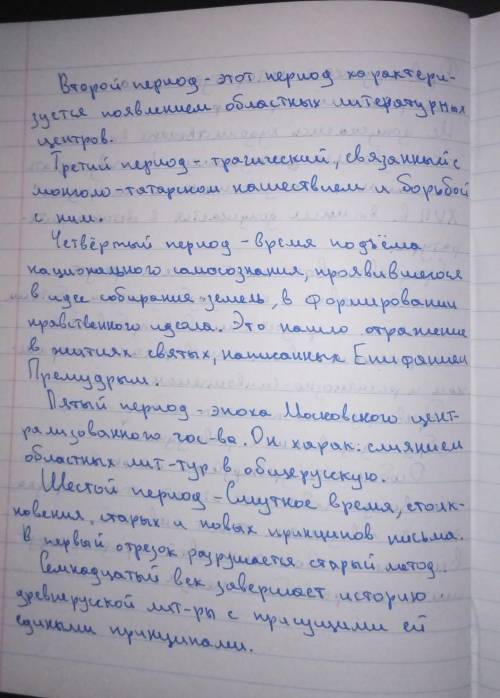 Второй период - этот период характери-
зуется появлением областных литературных
центров.
Третий период - трагический, связанный с
монголо-татарском нашествием и борьбой
с ним.
Четвёртый период - время подъёма
национального самосознания, проявившегося
в идее собирания земель, в формировании
нравственного идеала. Это нашло отражение
в житиях святых, написанных Епифанием
Премудрым.
Пятый период - эпоха Московского цент-
рализованного гос-ва. Он харак. слиянием
областных лит-тур в общерусскую.
Шестой период - Смутное время, столк-
новения, старых и новых принципов письма.
В первый отрезок разрушается старый метод..
Семнадцатый век завершает историю
древнерусской лит-ры с присущими ей
едиными принципами.